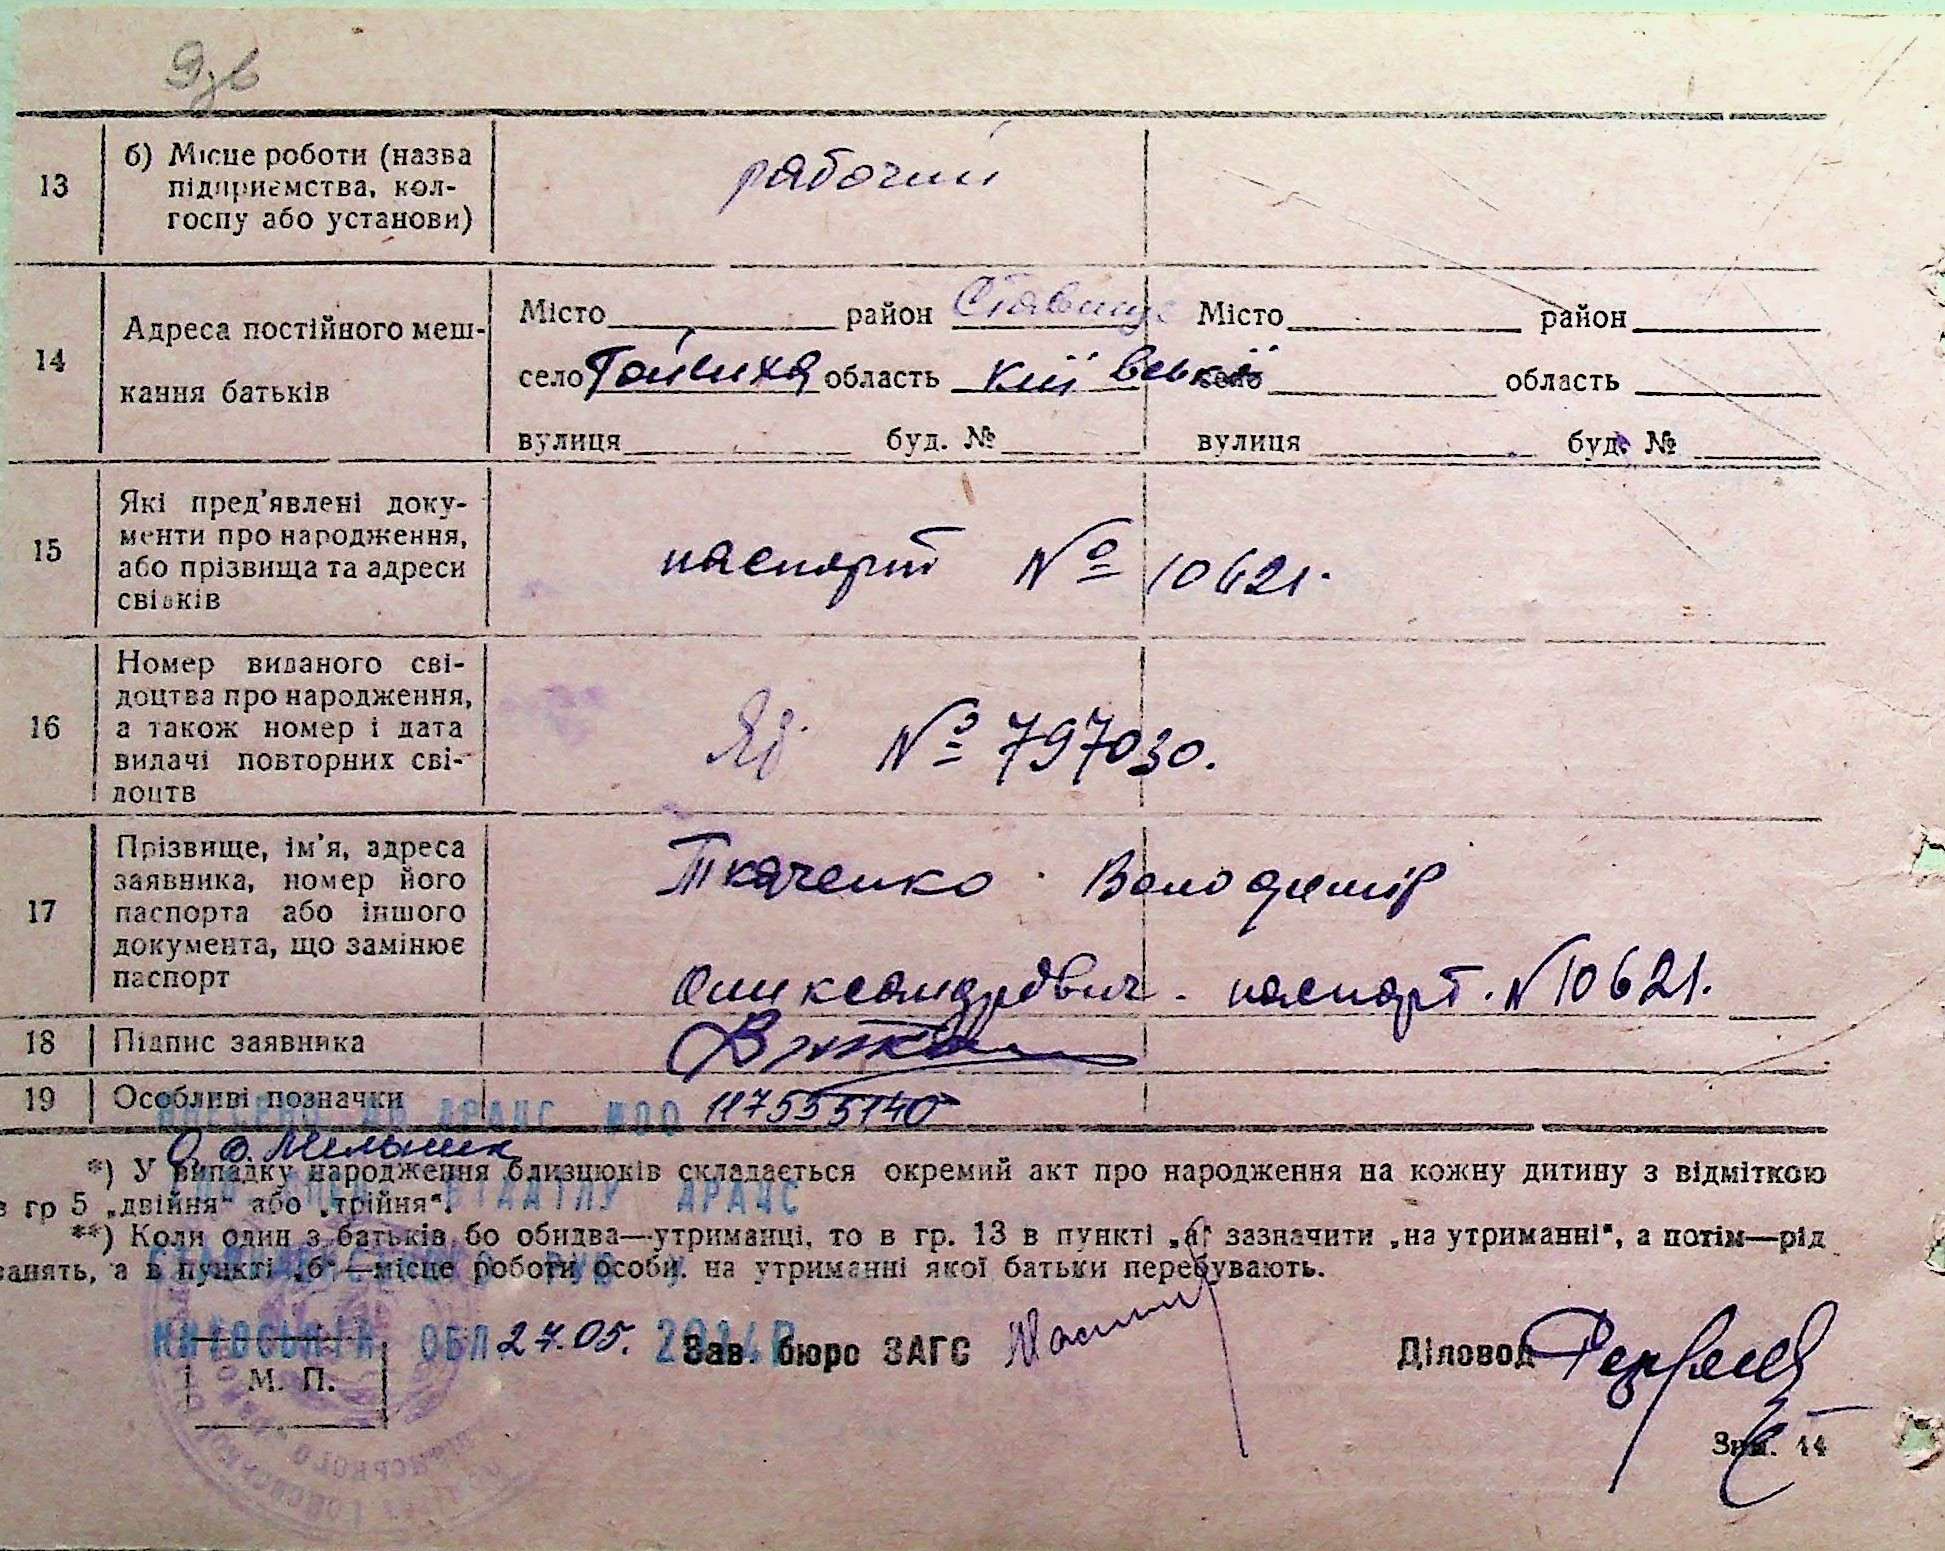 13 б) Місце роботи (назва
підприємства, кол-
госпу або установи)
рабочий
14 Адреса постійного меш-
кання батьків
Місто район Ставище Місто район
село Гайчиха область Київської село область
вулиця буд. № вулиця буд. №
15 Які пред'явлені доку-
менти про народження,
або прізвища та адреси
свідків
паспорт № 10621.
16 Номер виданого сві-
доцтва про народження,
а також номер і дата
видачі повторних сві-
доцтв
№ 797030.
17 Прізвище, ім'я, адреса
заявника, номер його
паспорта або іншого
документа, що замінює
паспорт
Ткаченко Володимір
Олександрович. паспорт. № 10621.
18 Підпис заявника
19 Особливі позначки 1175555140
ДРАЦС
О.О. Мельник
*) У випадку народження близнюків складається окремий акт про народження на кожну дитину з відміткою
в гр 5 „двійня“ або „трійня“.
ВІДДІЛУ ДРАЦС
**) Коли один з батьків бо обидва—утриманці, то в гр. 13 в пункті „а“ зазначити „на утриманні“, а потім—рід
занять, а в пункті „б“—місце роботи особи. на утриманні якої батьки перебувають.
ОБЛ. 27.05. 2014Р
Зав. бюро ЗАГС Діловод
М. П.
Зам. 14